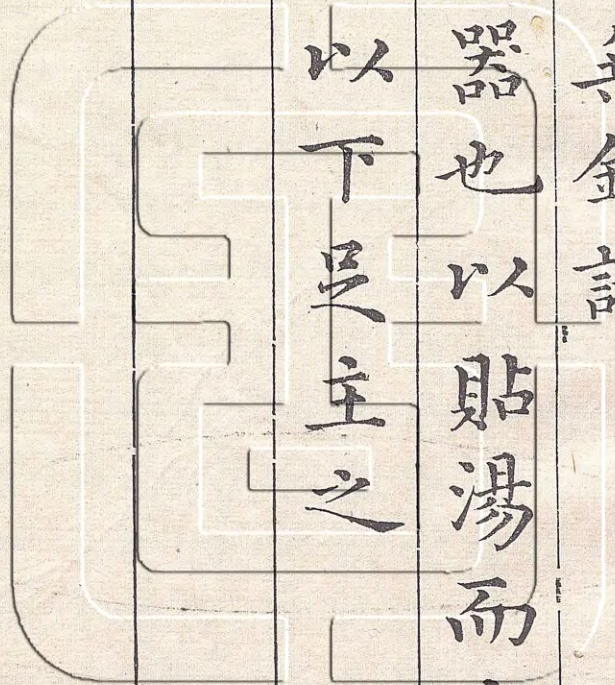 金
器也以貼湯而
以下足主之